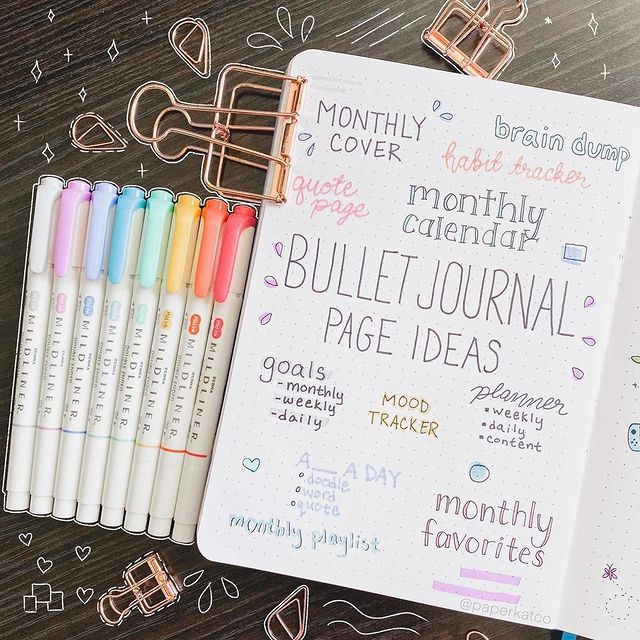 MONTHLY
COVER
brain dump
habit tracker
quote
page
monthly
calendar
BULLET JOURNAL
PAGE IDEAS
goals
-monthly
-weekly
-daily
MOOD
TRACKER
planner
•weekly
•daily
•content
A__A DAY
°doodle
°word
°quote
monthly playlist
monthly
favorites
@paperkatco
MILDLINER
MILDLINER
MILDLINER
MILDLINER
MILDLINER
MILDLINER
MILDLINER
MILDLINER